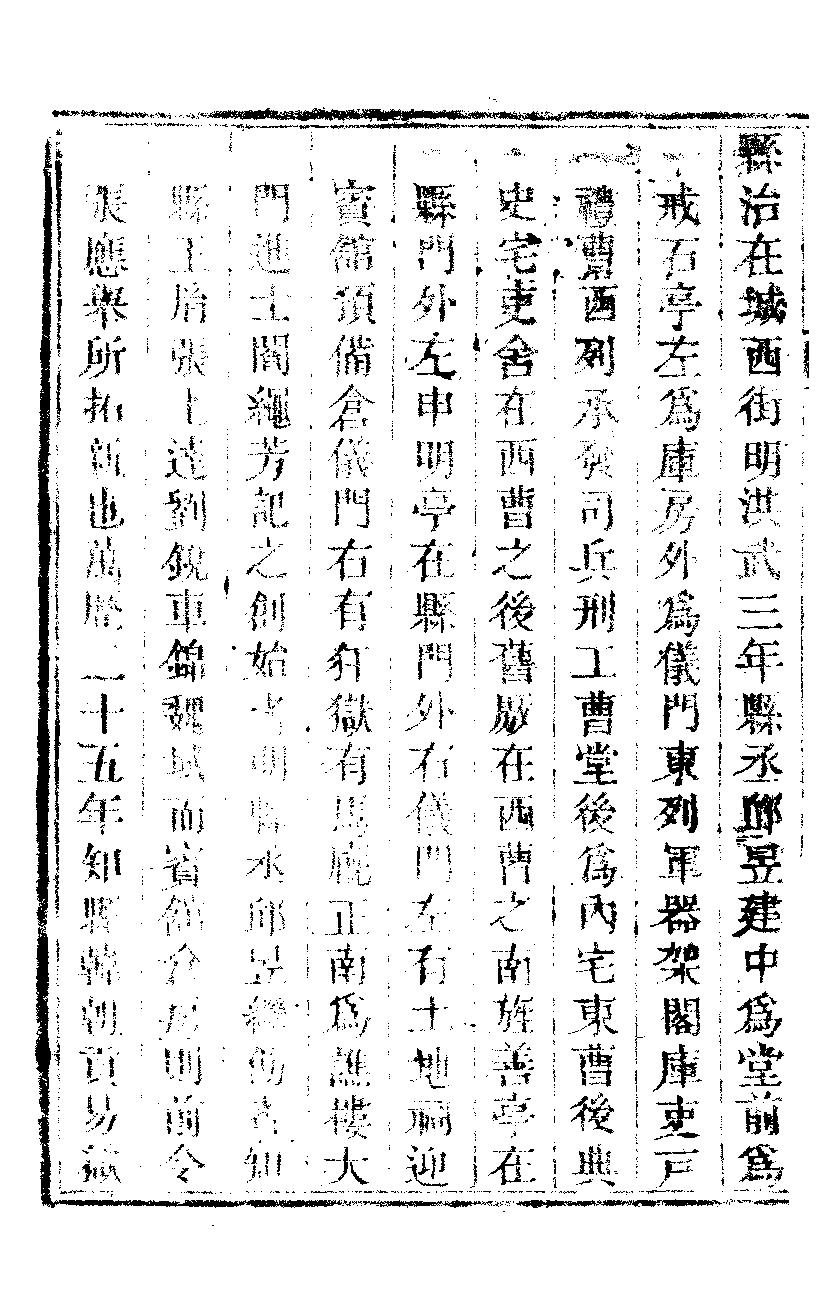 縣治在城西街明洪武三年縣丞邱昱建中爲堂前爲
戒石亭左爲庫房外爲儀門東列軍器架閣庫吏戸
禮曹西列承發司兵刑工曹堂後爲內宅東曹後典
史宅吏舍在西曹之後舊厫在西曹之南旌善亭在
縣門外左申明亭在縣門外右儀門左有土地祠迎
賓舘預備倉儀門右有犴獄有馬廐正南爲譙樓大
門進士閻繩芳記之創始者明縣丞邱昱繼修者知
縣王貽張上達劉銳車錦魏域而賓舘倉厫則前令
張應舉所拓新也萬曆二十五年知縣韓朝貢易獄